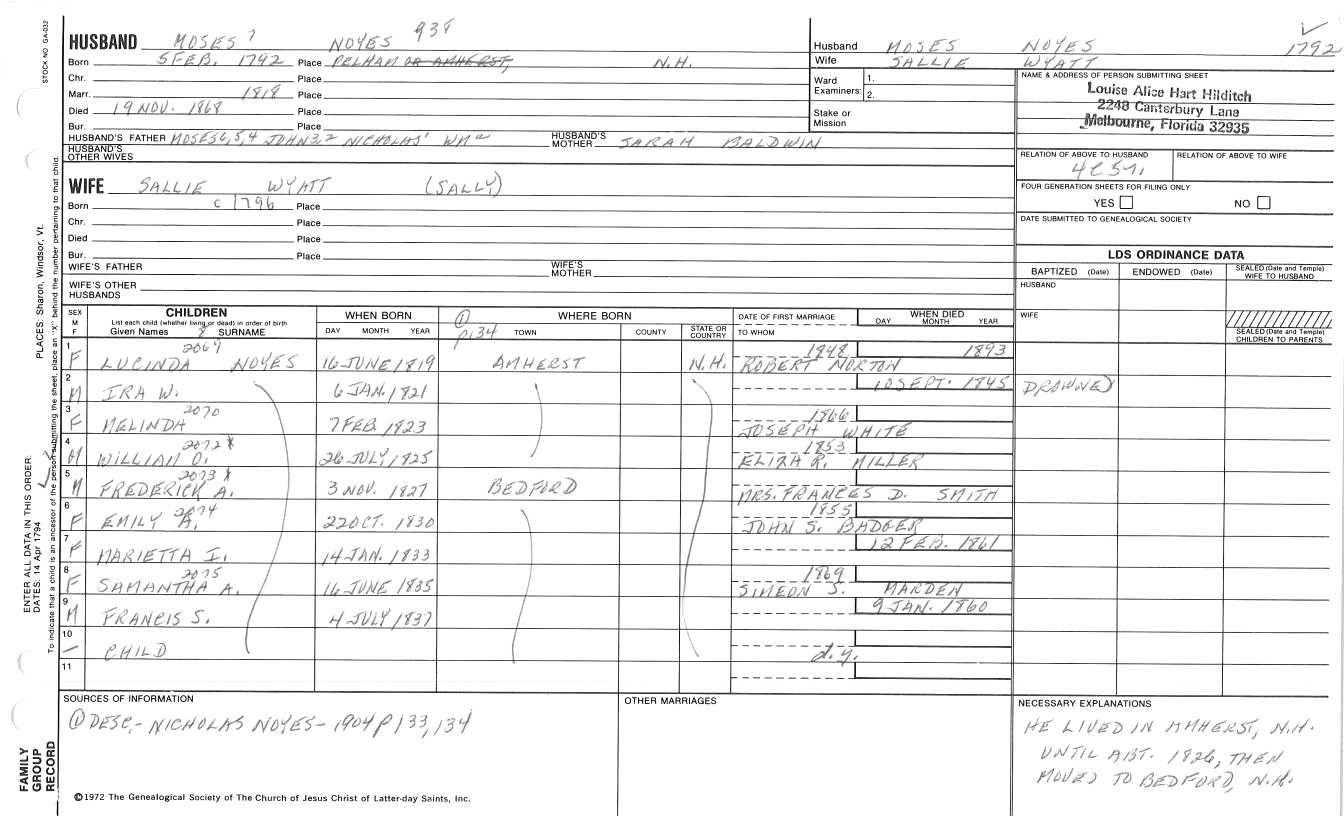 STOCK NO. GA-032
HUSBAND MOSES 7 NOYES 938
Born 5 FEB. 1792 Place PELHAM OR AMHERST, N.H.
Chr. Place
Marr. 1818 Place
Died 19 NOV. 1868 Place
Bur. Place
HUSBAND'S FATHER MOSES 6,5,4 JOHN 3,2 NICHOLAS' WMa HUSBAND'S MOTHER SARAH BALDWIN
HUSBAND'S OTHER WIVES
WIFE SALLIE WYATT (SALLY)
Born c 1796 Place
Chr. Place
Died Place
Bur. Place
WIFE'S FATHER WIFE'S MOTHER
WIFE'S OTHER HUSBANDS
Husband MOSES NOYES 1792
Wife SALLIE WYATT
Ward Examiners: 1.
2.
Stake or Mission
NAME & ADDRESS OF PERSON SUBMITTING SHEET
Louise Alice Hart Hilditch
2248 Canterbury Lane
Melbourne, Florida 32935
RELATION OF ABOVE TO HUSBAND RELATION OF ABOVE TO WIFE
4C5r.
FOUR GENERATION SHEETS FOR FILING ONLY
YES NO
DATE SUBMITTED TO GENEALOGICAL SOCIETY
LDS ORDINANCE DATA
BAPTIZED (Date) ENDOWED (Date) SEALED (Date and Temple) WIFE TO HUSBAND
HUSBAND
WIFE
SEALED (Date and Temple) CHILDREN TO PARENTS
SEX M F
CHILDREN
List each child (whether living or dead) in order of birth
Given Names 8 SURNAME
WHEN BORN
DAY MONTH YEAR
① p134
WHERE BORN
TOWN COUNTY STATE OR COUNTRY
DATE OF FIRST MARRIAGE
TO WHOM
WHEN DIED
DAY MONTH YEAR
1 F LUCINDA 2069 NOYES 16 JUNE 1819 AMHERST N.H. 1848 1893 ROBERT NORTON
2 M IRA W. 6 JAN. 1821 10 SEPT. 1845 DROWNED
3 F MELINDA 2070 7 FEB. 1823 1866 JOSEPH WHITE
4 M WILLIAM O. 2072 X 26 JULY 1825 1853 ELIZA R. MILLER
5 M FREDERICK A. 2073 X 3 NOV. 1827 BEDFORD MRS. FRANCES D. SMITH
6 F EMILY A. 2074 22 OCT. 1830 1855 JOHN S. BADGER
7 F MARIETTA I. 14 JAN. 1833 12 FEB. 1861
8 F SAMANTHA A. 2075 16 JUNE 1835 1869 SIMEON S. MARDEN
9 M FRANCIS S. 4 JULY 1837 9 JAN. 1860
10 — CHILD d.y.
11
SOURCES OF INFORMATION
① DESC.- NICHOLAS NOYES - 1904 p 133, 134
OTHER MARRIAGES
NECESSARY EXPLANATIONS
HE LIVED IN AMHERST, N.H.
UNTIL ABT. 1826, THEN
MOVED TO BEDFORD, N.H.
©1972 The Genealogical Society of The Church of Jesus Christ of Latter-day Saints, Inc.
FAMILY GROUP RECORD
ENTER ALL DATA IN THIS ORDER
DATES: 14 Apr 1794
PLACES: Sharon, Windsor, Vt.
To indicate that a child is an ancestor of the person submitting the sheet, place an "X" behind the number pertaining to that child.